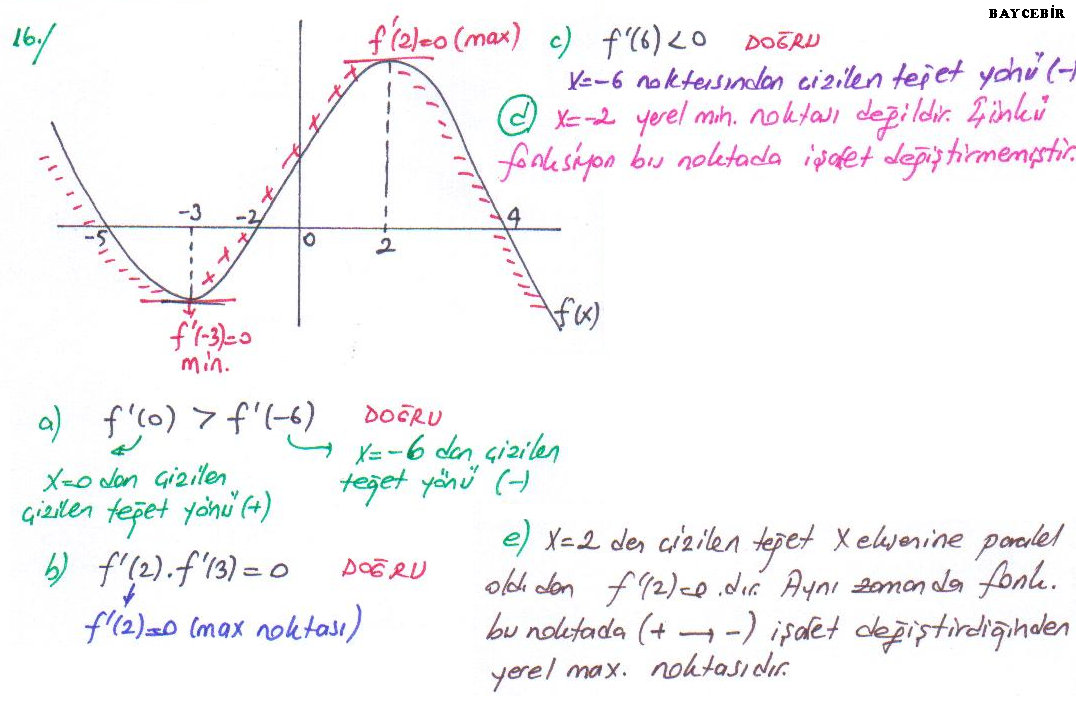 BAYCEBİR
16./
f'(2)=0 (max)
-5
-3
-2
0
2
4
f(x)
f'(-3)=0
min.
a) f'(0) > f'(-6) DOĞRU
x=0 dan çizilen
çizilen teğet yönü (+)
x=-6 dan çizilen
teğet yönü (-)
b) f'(2).f'(3)=0 DOĞRU
f'(2)=0 (max noktası)
c) f'(6)<0 DOĞRU
x=-6 noktasından çizilen teğet yönü (-)
d) x=-2 yerel min. noktası değildir. Çünkü
fonksiyon bu noktada işaret değiştirmemiştir.
e) x=2 den çizilen teğet x eksenine paralel
old. dan f'(2)=0 .dır. Aynı zamanda fonk.
bu noktada (+ → -) işaret değiştirdiğinden
yerel max. noktasıdır.